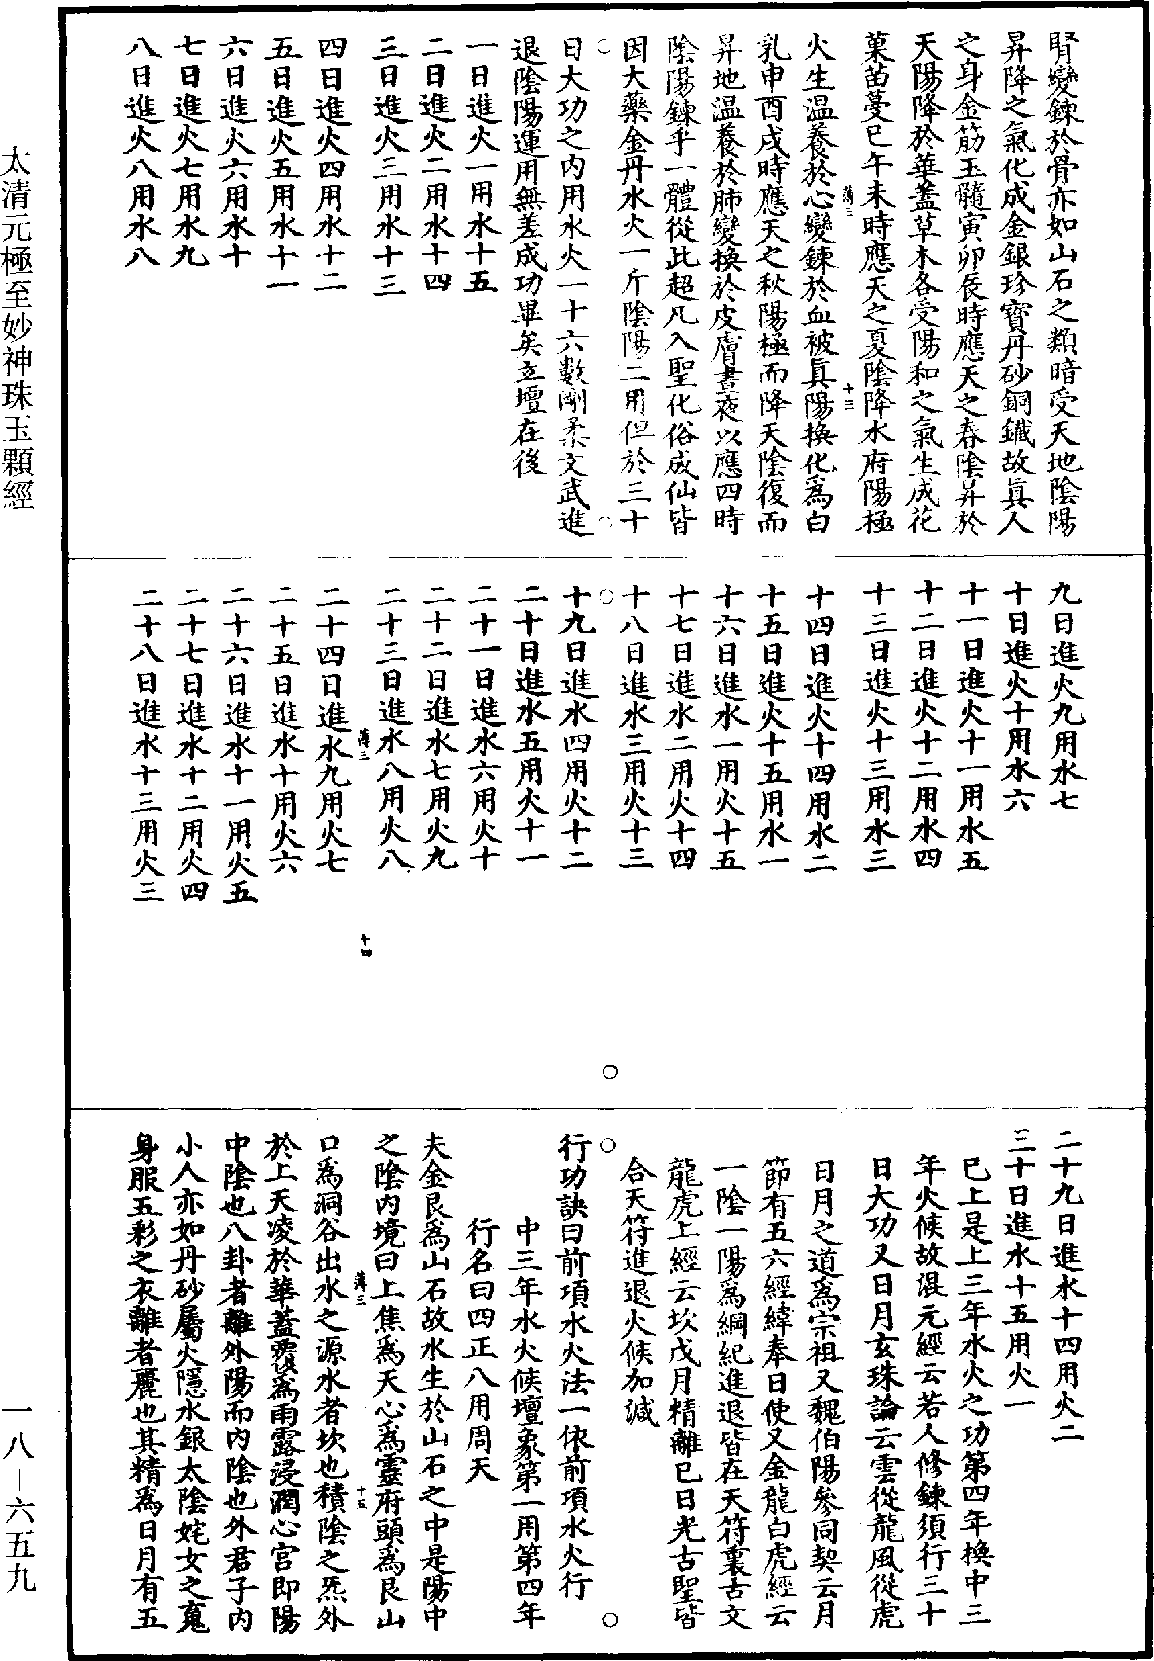 腎變鍊於骨亦如山石之類暗受天地陰陽
昇降之氣化成金銀珍寶丹砂銅鐵故眞人
之身金筋玉髓寅卯辰時應天之春陰昇於
天陽降於華蓋草木各受陽和之氣生成花
菓苗蔓巳午未時應天之夏陰降水府陽極
薄三
十三
火生温養於心變鍊於血被眞陽換化爲白
乳申酉戌時應天之秋陽極而降天陰復而
昇地温養於肺變換於皮膚晝夜以應四時
陰陽鍊乎一體從此超凡入聖化俗成仙皆
因大藥金丹水火一斤陰陽二用但於三十
日大功之内用水火一十六數剛柔文武進
退陰陽運用無差成功畢矣立壇在後
一日進火一用水十五
二日進火二用水十四
三日進火三用水十三
四日進火四用水十二
五日進火五用水十一
六日進火六用水十
七日進火七用水九
八日進火八用水八
九日進火九用水七
十日進火十用水六
十一日進火十一用水五
十二日進火十二用水四
十三日進火十三用水三
十四日進火十四用水二
十五日進火十五用水一
十六日進水一用火十五
十七日進水二用火十四
十八日進水三用火十三
十九日進水四用火十二
二十日進水五用火十一
二十一日進水六用火十
二十二日進水七用火九
二十三日進水八用火八
薄三
十四
二十四日進水九用火七
二十五日進水十用火六
二十六日進水十一用火五
二十七日進水十二用火四
二十八日進水十三用火三
二十九日進水十四用火二
三十日進水十五用火一
巳上是上三年水火之功第四年換中三
年火候故混元經云若人修鍊須行三十
日大功又日月玄珠論云雲從龍風從虎
日月之道爲宗祖又魏伯陽參同契云月
節有五六經緯奉日使又金龍白虎經云
一陰一陽爲綱紀進退皆在天符裏古文
龍虎上經云坎戊月精離巳日光古聖皆
合天符進退火候加減
行功訣曰前項水火法一依前項水火行
中三年水火候壇象第一用第四年
行名曰四正八用周天
夫金艮爲山石故水生於山石之中是陽中
之陰内境曰上焦爲天心爲靈府頭爲艮山
薄三
十五
口爲洞谷出水之源水者坎也積陰之炁外
於上天凌於華蓋覆爲雨露浸潤心宫即陽
中陰也八卦者離外陽而内陰也外君子内
小人亦如丹砂屬火隱水銀太陰姹女之䰟
身服五彩之衣離者麗也其精爲日月有五
太清元極至妙神珠玉顆經
一八—六五九